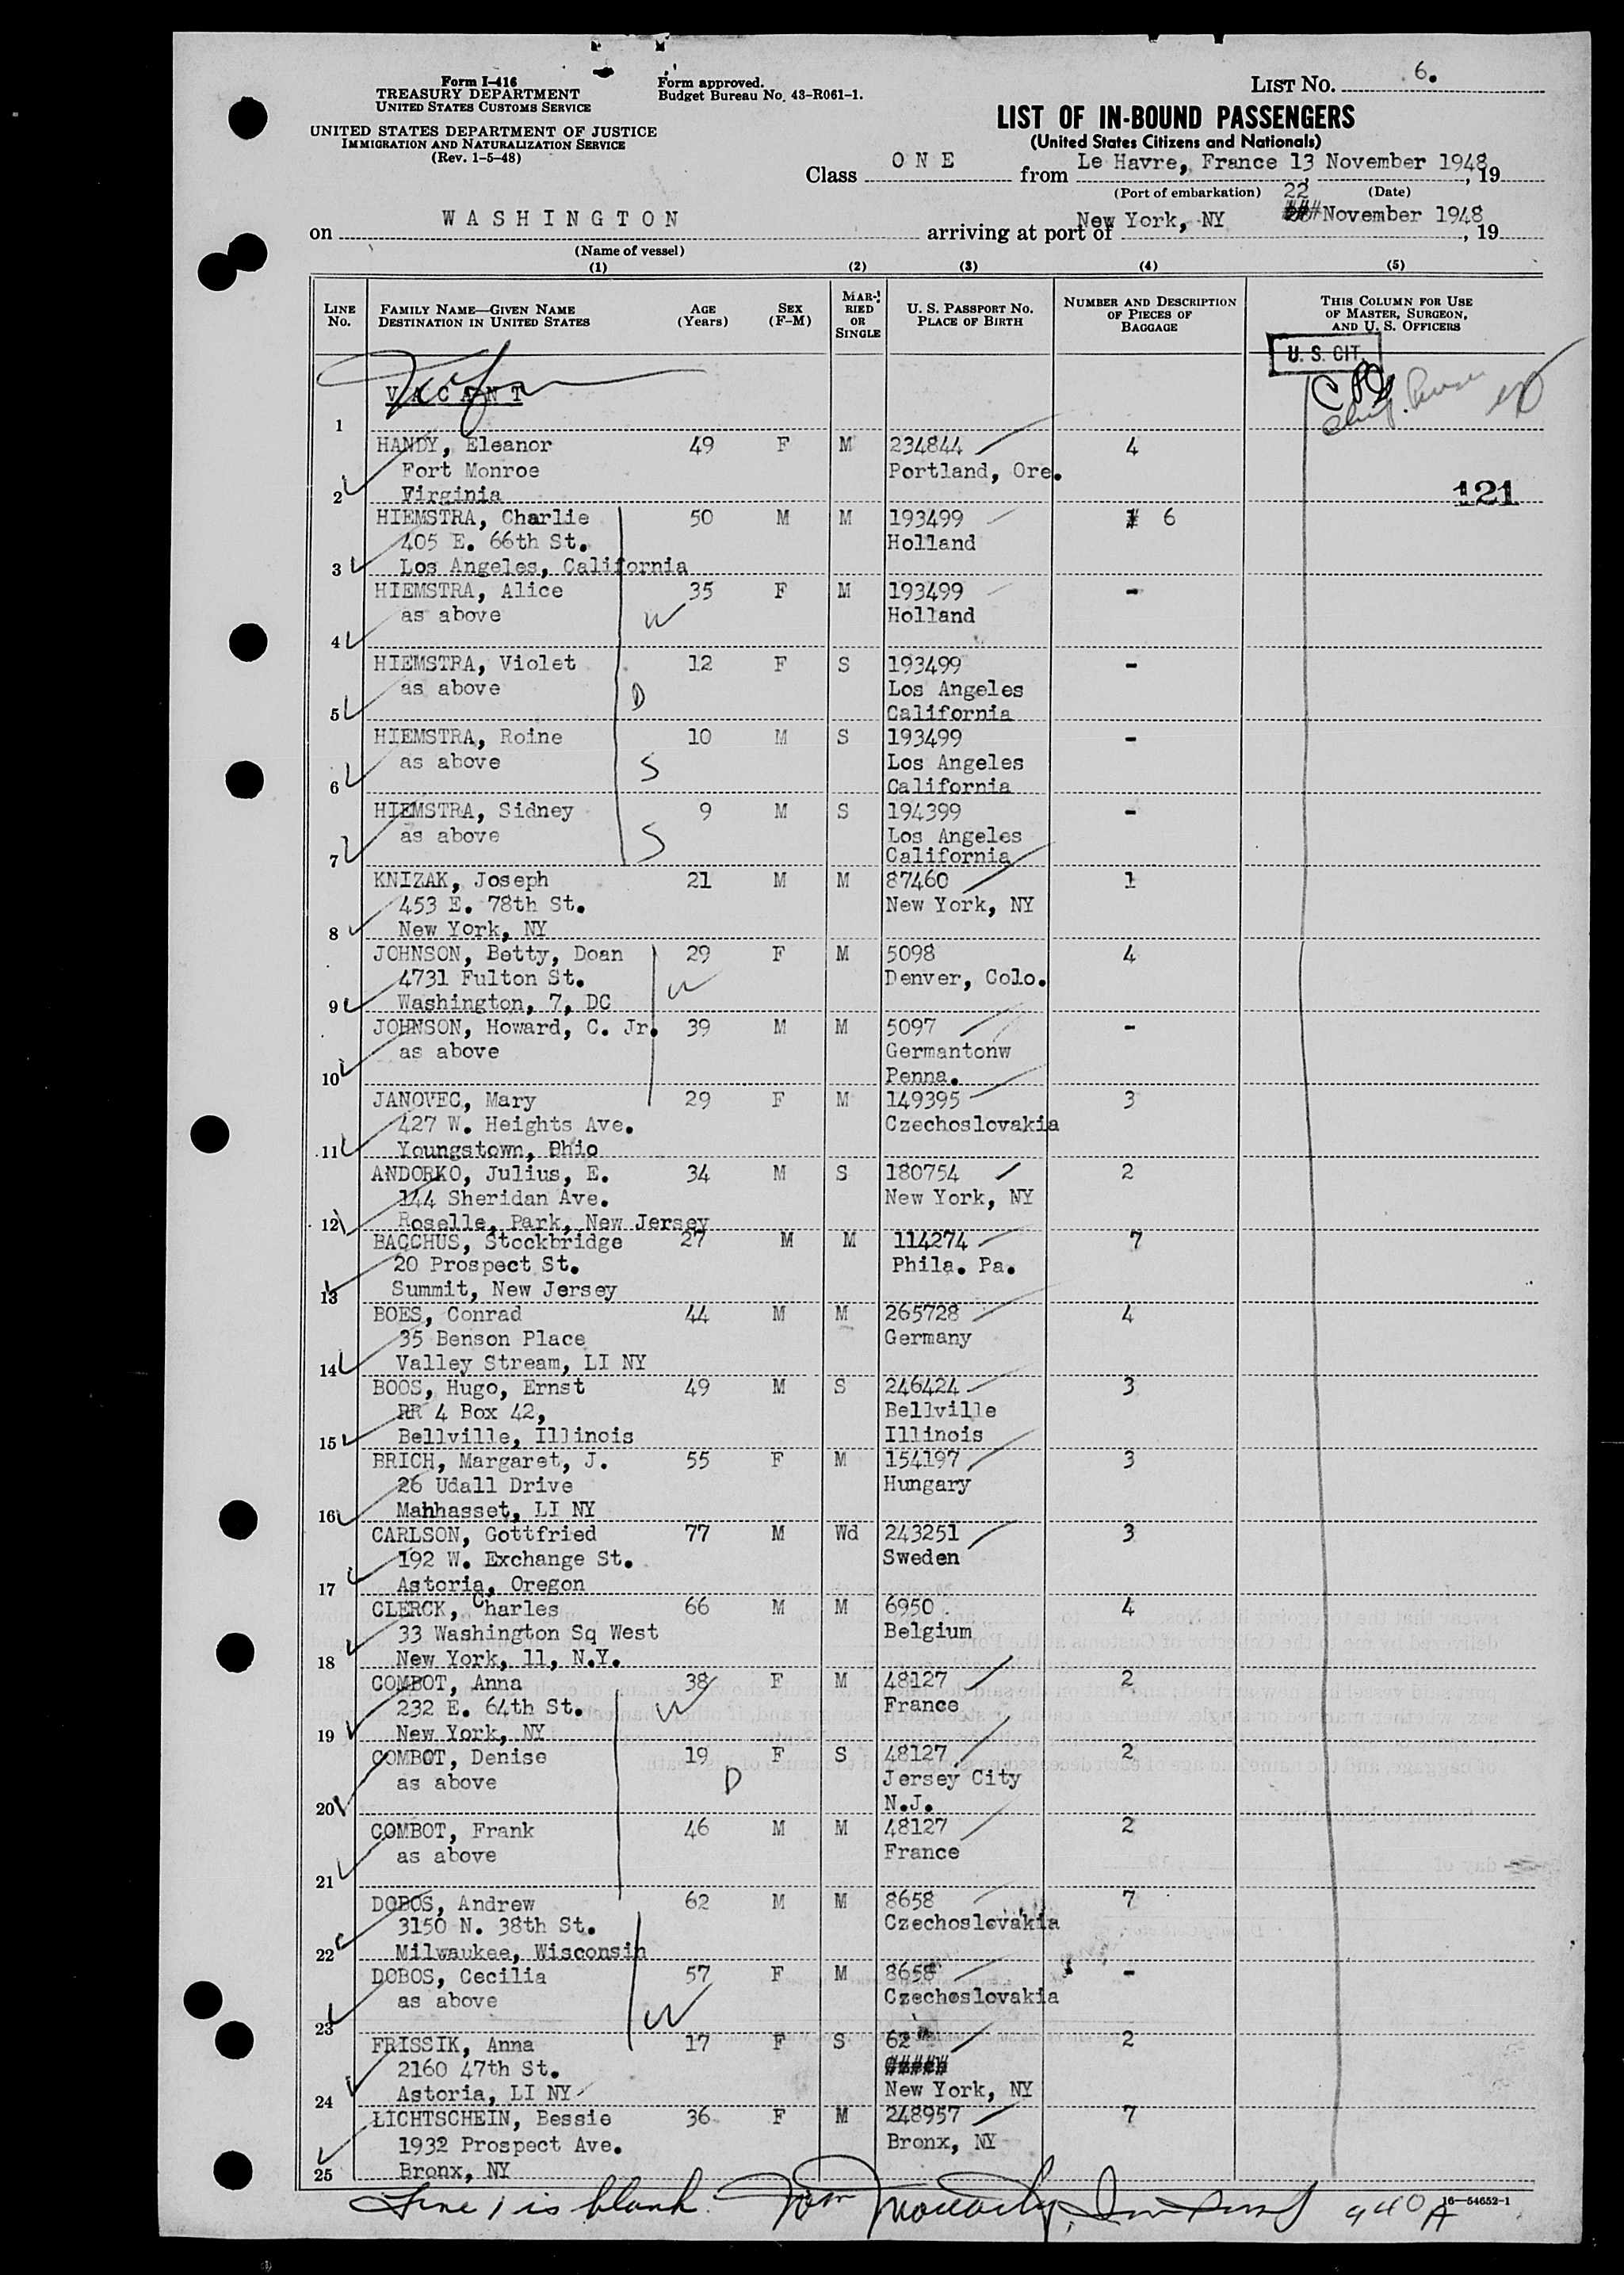 Form I-416
TREASURY DEPARTMENT
UNITED STATES CUSTOMS SERVICE
UNITED STATES DEPARTMENT OF JUSTICE
IMMIGRATION AND NATURALIZATION SERVICE
(Rev. 1-5-48)
Form approved.
Budget Bureau No. 43-R061-1.
LIST No. 6.
LIST OF IN-BOUND PASSENGERS
(United States Citizens and Nationals)
Class ONE from Le Havre, France 13 November 1948, 19
(Port of embarkation) (Date)
22
on WASHINGTON arriving at port of New York, NY November 1948, 19
(Name of vessel)
(1) (2) (3) (4) (5)
LINE No. FAMILY NAME—GIVEN NAME DESTINATION IN UNITED STATES AGE (Years) SEX (F-M) MARRIED OR SINGLE U. S. PASSPORT No. PLACE OF BIRTH NUMBER AND DESCRIPTION OF PIECES OF BAGGAGE THIS COLUMN FOR USE OF MASTER, SURGEON, AND U. S. OFFICERS
U. S. CIT.
VACANT
1
HANDY, Eleanor 49 F M 234844 4
Fort Monroe Portland, Ore.
2 Firginia 121
HIEMSTRA, Charlie 50 M M 193499 6
405 E. 66th St. Holland
3 Los Angeles, California
HIEMSTRA, Alice 35 F M 193499 -
as above W Holland
4
HIEMSTRA, Violet 12 F S 193499 -
as above D Los Angeles
5 California
HIEMSTRA, Roine 10 M S 193499 -
as above S Los Angeles
6 California
HIEMSTRA, Sidney 9 M S 194399 -
as above S Los Angeles
7 California
KNIZAK, Joseph 21 M M 87460 1
453 E. 78th St. New York, NY
8 New York, NY
JOHNSON, Betty, Doan 29 F M 5098 4
4731 Fulton St. W Denver, Colo.
9 Washington, 7, DC
JOHNSON, Howard, C. Jr. 39 M M 5097 -
as above Germantonw
10 Penna.
JANOVEC, Mary 29 F M 149395 3
427 W. Heights Ave. Czechoslovakia
11 Youngstown, Phio
ANDORKO, Julius, E. 34 M S 180754 2
144 Sheridan Ave. New York, NY
12 Roselle, Park, New Jersey
BACCHUS, Stockbridge 27 M M 114274 7
20 Prospect St. Phila. Pa.
13 Summit, New Jersey
BOES, Conrad 44 M M 265728 4
35 Benson Place Germany
14 Valley Stream, LI NY
BOOS, Hugo, Ernst 49 M S 246424 3
RR 4 Box 42, Bellville
15 Bellville, Illinois Illinois
BRICH, Margaret, J. 55 F M 154197 3
26 Udall Drive Hungary
16 Mahhasset, LI NY
CARLSON, Gottfried 77 M Wd 243251 3
192 W. Exchange St. Sweden
17 Astoria, Oregon
CLERCK, Charles 66 M M 6950 4
33 Washington Sq West Belgium
18 New York, 11, N.Y.
COMBOT, Anna 38 F M 48127 2
232 E. 64th St. W France
19 New York, NY
COMBOT, Denise 19 F S 48127 2
as above D Jersey City
20 N.J.
COMBOT, Frank 46 M M 48127 2
as above France
21
DOBOS, Andrew 62 M M 8658 7
3150 N. 38th St. Czechoslovakia
22 Milwaukee, Wisconsin
DOBOS, Cecilia 57 F M 8658 -
as above W Czechoslovakia
23
FRISSIK, Anna 17 F S 62 2
2160 47th St.
24 Astoria, LI NY New York, NY
LICHTSCHEIN, Bessie 36 F M 248957 7
1932 Prospect Ave. Bronx, NY
25 Bronx, NY
Line 1 is blank. 940A
16-54652-1